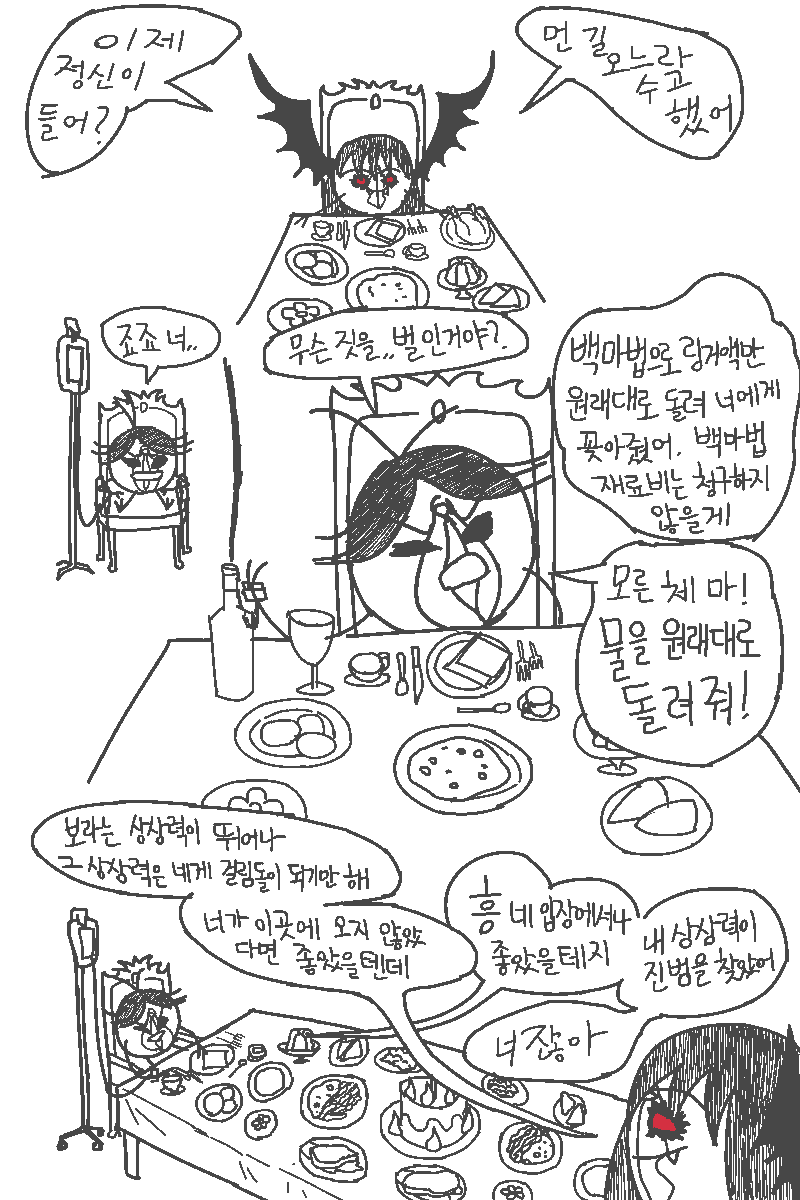 이제
정신이
들어?
먼 길
오느라
수고
했어
죠죠 너..
무슨 짓을,, 벌인거야?
백마법으로 링거액만
원래대로 돌려 너에게
꽂아줬어. 백마법
재료비는 청구하지
않을게
모른 체 마!
물을 원래대로
돌려줘!
보라는 상상력이 뛰어나
그 상상력은 네게 걸림돌이 되기만 해
너가 이곳에 오지 않았
다면 좋았을텐데
흥 네 입장에서나
좋았을테지
내 상상력이
진범을 찾았어
너잖아